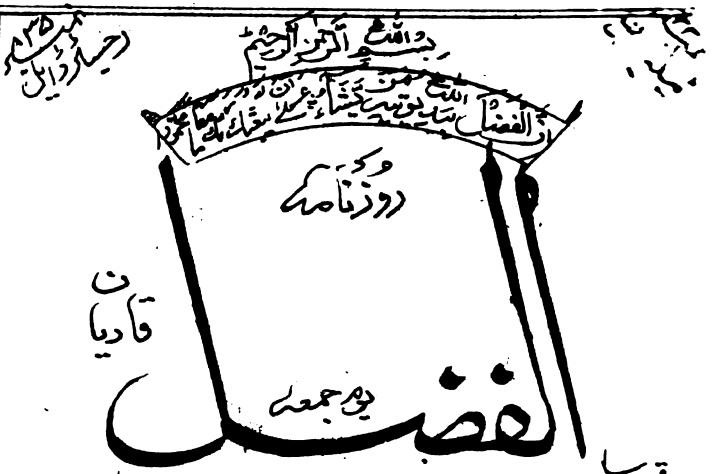 رجسٹرڈ ایل نمبر ۸۳۵
بسم اللہ الرحمن الرحیم
ان الفضل بید اللہ یؤتیہ من یشاء عسیٰ ان یبعثک ربک مقاما محمودا
روزنامہ
قادیان
الفضل
یوم جمعہ